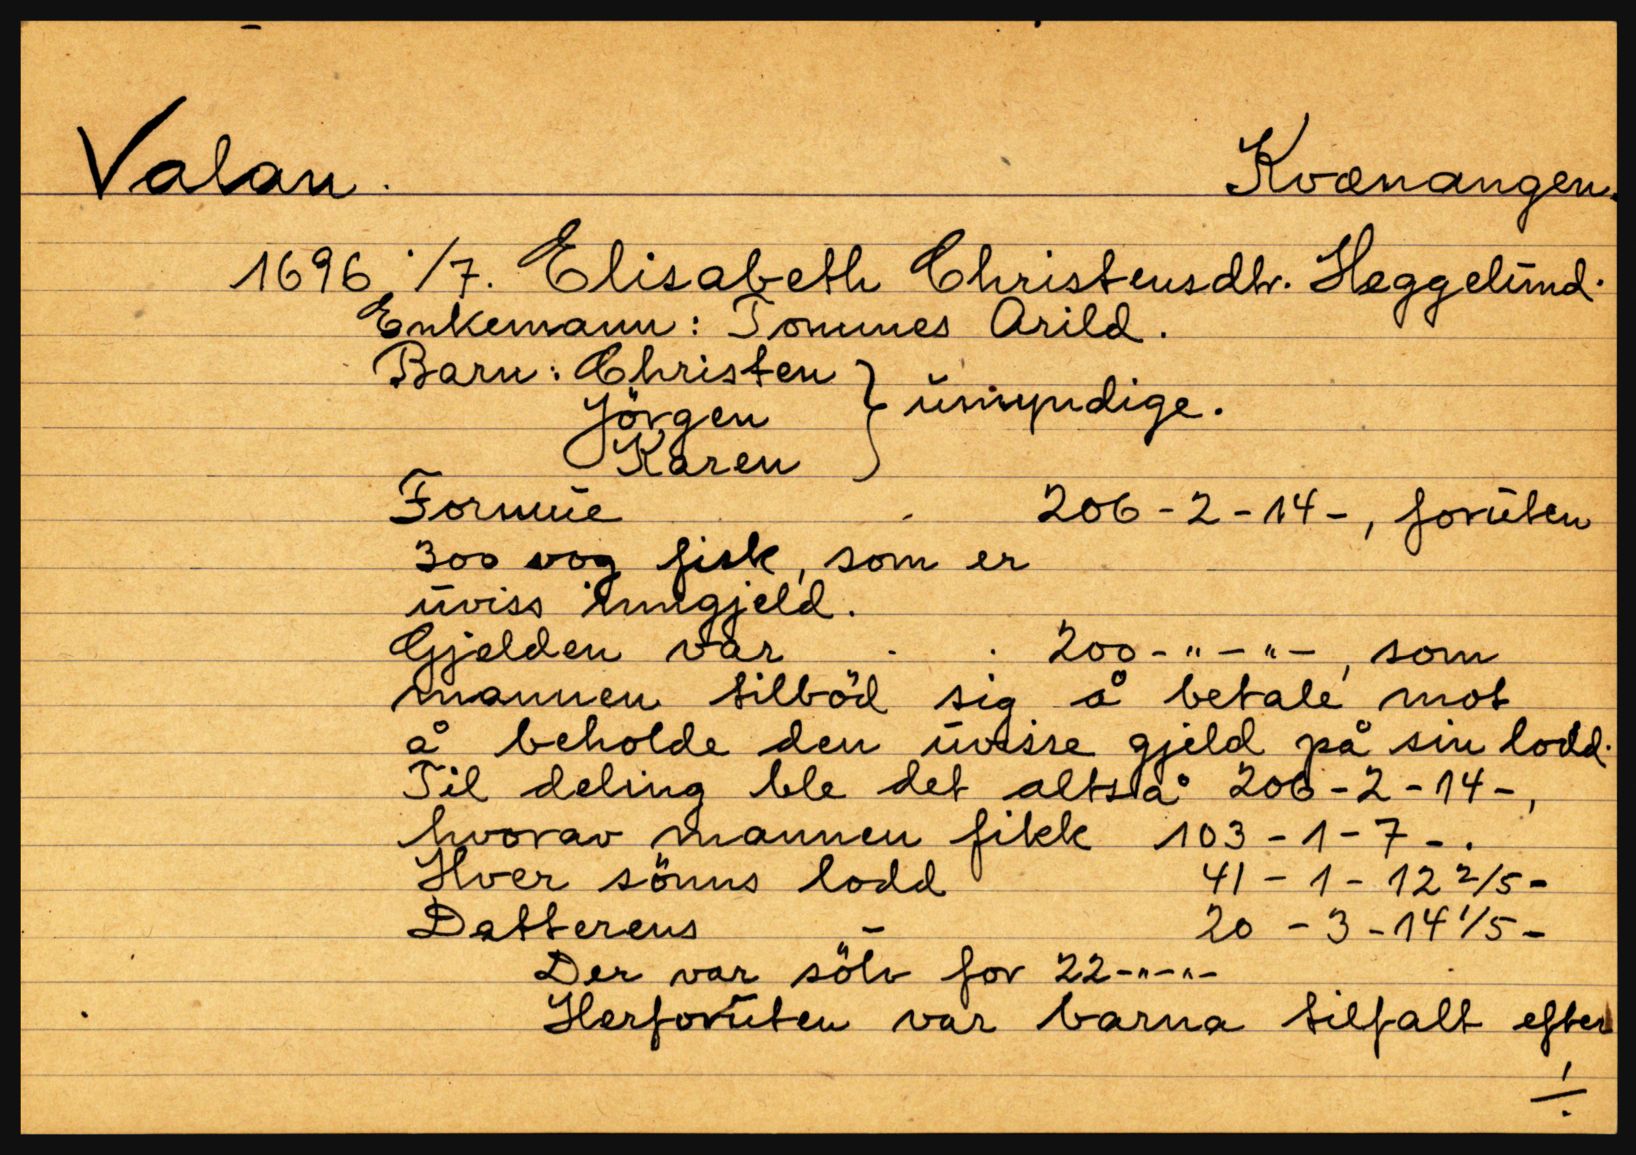 Valan. Kvænangen.
1696 1/7. Elisabeth Christensdtr. Heggelund.
Enkemann: Tommes Arild.
Barn: Christen
Jörgen } umyndige.
Karen
Formue 206-2-14-, foruten
300 vog fisk, som er
uviss inngjeld.
Gjelden var 200-"-"-, som
mannen tilböd sig å betale mot
å beholde den uvisse gjeld på sin lodd.
Til deling ble det altså 206-2-14-,
hvorav mannen fikk 103-1-7-.
Hver sönns lodd 41-1-12 2/5-
Datterens - 20-3-14 1/5-
Der var sölv for 22-"-"-
Herforuten var barna tilfalt efter